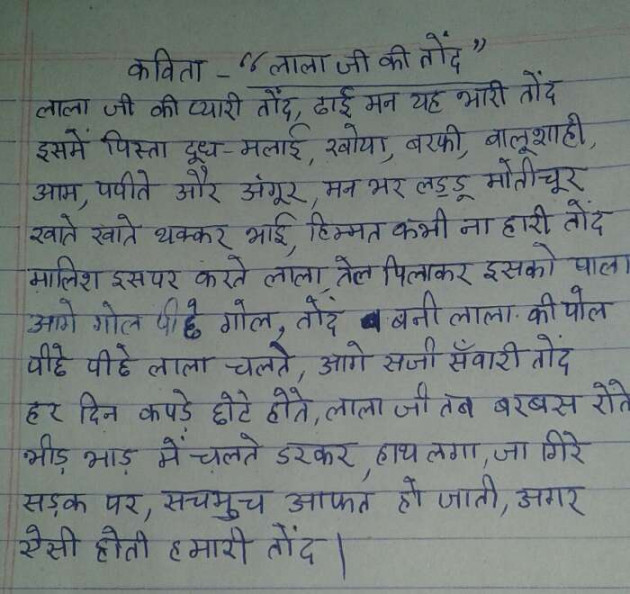 कविता - “लाला जी की तोंद”
लाला जी की प्यारी तोंद, ढाई मन यह भारी तोंद
इसमें पिस्ता दूध-मलाई, खोया, बरफी, बालूशाही,
आम, पपीते और अंगूर, मन भर लड्डू मोतीचूर
खाते खाते थक्कर भाई, हिम्मत कभी ना हारी तोंद
मालिश इसपर करते लाला, तेल पिलाकर इसको पाला
आगे गोल पीछे गोल, तोंद बनी लाला की पोल
पीछे पीछे लाला चलते, आगे सजी सँवारी तोंद
हर दिन कपड़े छोटे होते, लाला जी तब बरबस रोते
भीड़ भाड़ में चलते डरकर, हाथ लगा, जा गिरे
सड़क पर, सचमुच आफत हो जाती, अगर
ऐसी होती हमारी तोंद |